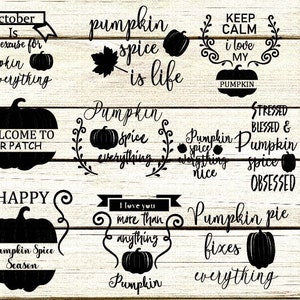 October
Is
excuse for
everything
pumpkin
spice
is life
KEEP
CALM
i love
MY
PUMPKIN
WELCOME TO
OUR PATCH
Pumpkin
spice
everything
Pumpkin
spice
everything
nice
STRESSED
BLESSED &
Pumpkin
spice
OBSESSED
HAPPY
Pumpkin Spice
Season
I love you
more than
anything
Pumpkin
Pumpkin pie
fixes
everything